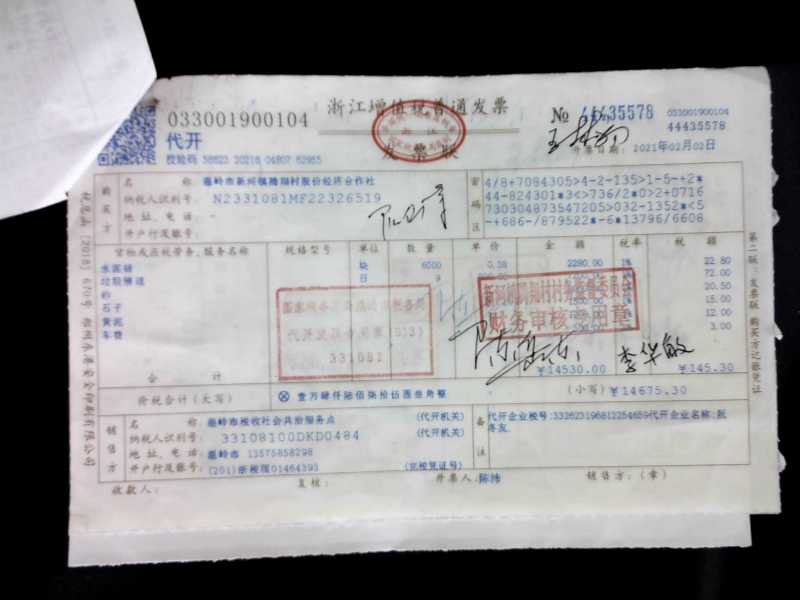 浙江增值税普通发票
033001900104
代开
№ 44435578
033001900104
44435578
校验码 58623 20216 04807 62965
发票联
开票日期：2021年02月02日
购买方
名 称：
纳税人识别号：N2331081MF22326519
地址、电话：
开户行及账号：
密码区
4/8+7084305>4-2-135>1-5-+2*
44-824301*3<>736/2*0>2+0716
7303048735472​05>032-1352*<5
-+686-/879522*-6*13796/6608
货物或应税劳务、服务名称 规格型号 单位 数量 单价 金额 税率 税额
水泥砖 块 6000 0.38 2280.00 1% 22.80
垃圾搬运 日 9 1% 72.00
砂 20.50
石子 15.00
黄泥 12.00
车费 3.00
新河镇 村村务监督委员会
财务审核专用章
代开发票专用章
331081
合计 ¥14530.00 ¥145.30
价税合计（大写） ⊗ 壹万肆仟陆佰柒拾伍圆叁角整 （小写）¥14675.30
销售方
名 称：温岭市税收社会共治服务点 （代开机关）
纳税人识别号：33108100DKD0484 （代开机关）
地址、电话：温岭市 13575858298
开户行及账号：(201)浙税现01464393 （完税凭证号）
备注
代开企业税号：332623196812254659代开企业名称：阮
冬友
收款人： 复核： 开票人：陈沛 销售方：（章）
第二联：发票联 购买方记账凭证
李华敏